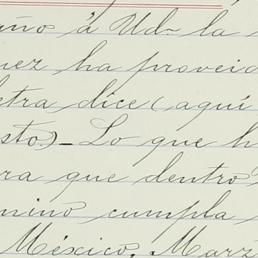 ino á Ud. la
uez ha proveid
etra dice (aquí
sto)_ Lo que h
ra que dentro
mino cumpla
México, Marz